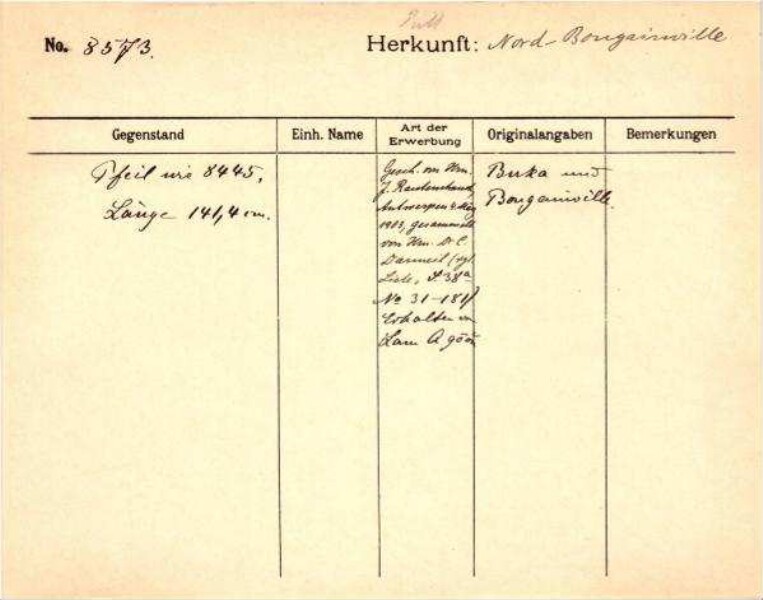 No. 8573. Herkunft: Nord-Bougainville
Gegenstand
Einh. Name
Art der Erwerbung
Originalangaben
Bemerkungen
Pfeil wie 8445,
Länge 141,4 cm.
Gesch. von Hrn.
J.
Antwerpen
gesammelt
von Hrn. Dr. C.
(vgl.
Liste, S. 38a
No 31-181)
Erhalten von
Buka und
Bougainville.